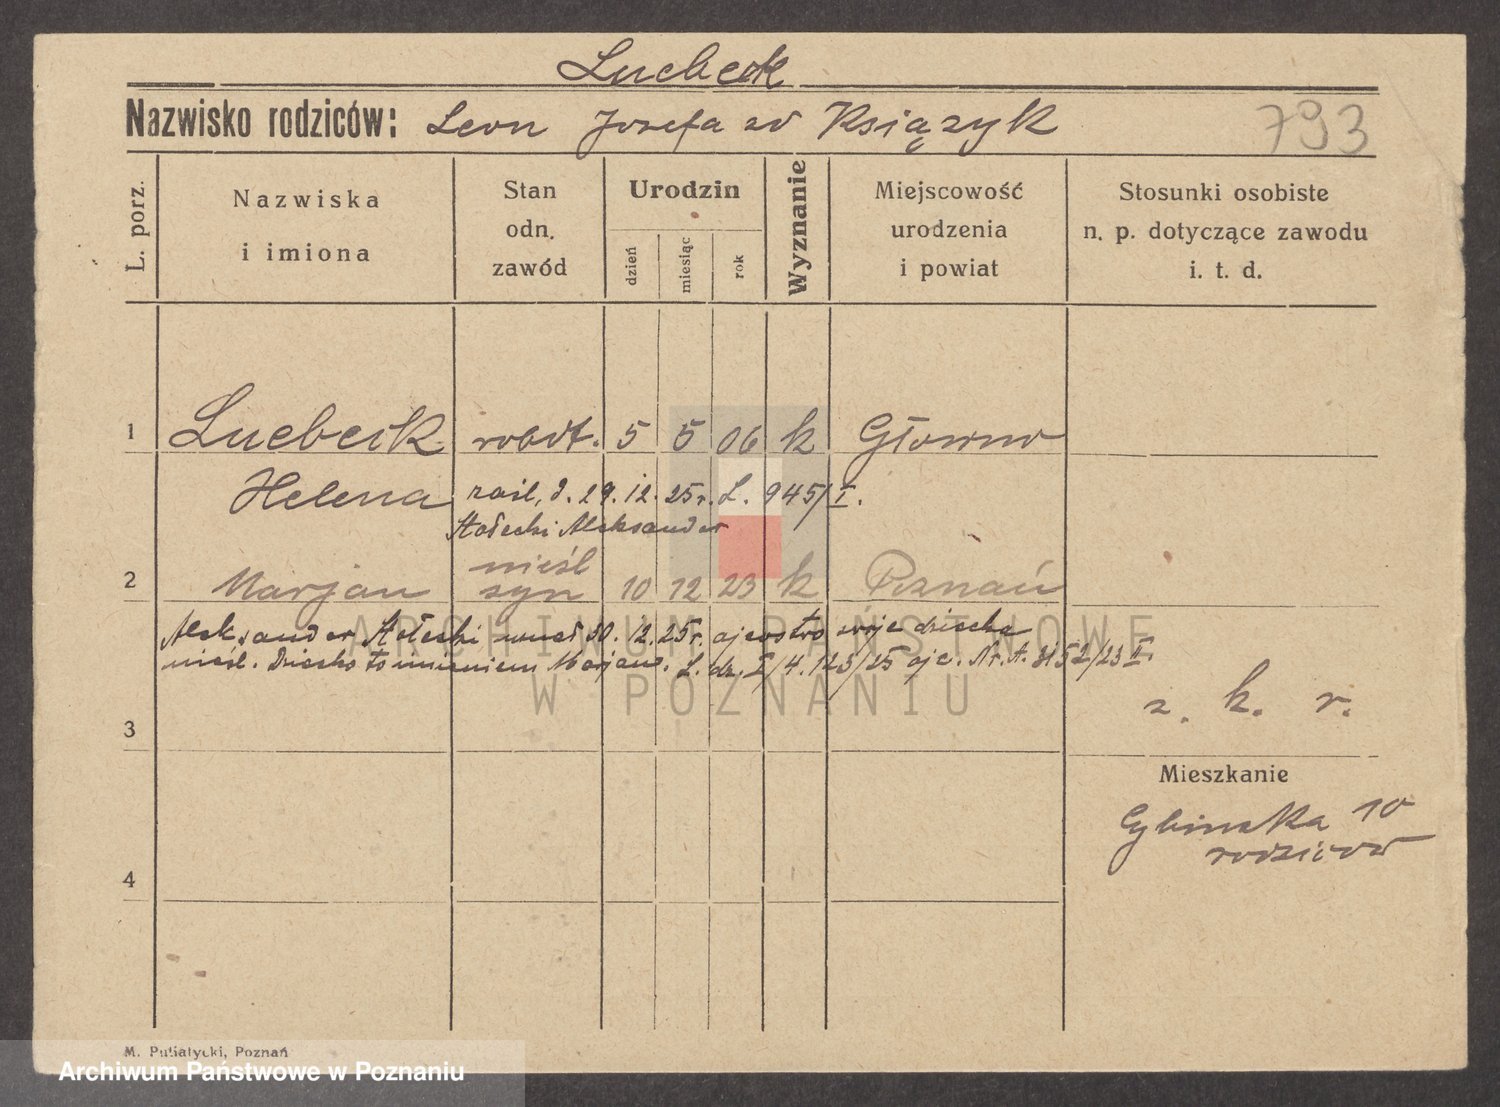 Luebeck
Nazwisko rodziców: Leon Josefa zd Książyk
793
L. porz.
Nazwiska i imiona
Stan odn. zawód
Urodzin
dzień
miesiąc
rok
Wyznanie
Miejscowość urodzenia i powiat
Stosunki osobiste n. p. dotyczące zawodu i. t. d.
1 Luebeck robot. 5 5 06 k Główno
Helena zaśl. d. 29. 12. 25 r. L. 945/I.
Stołecki Aleksander
nieśl
2 Marjan syn 10 12 23 k Poznań
Aleksander Stołecki uznał 30. 12. 25 r. ojcostwo swoje dziecka
nieśl. Dziecko to imieniem Marjan. L. dz. I/4. 123/25 ojc. Nr. A. 3152/23 II.
z. k. r.
3
Mieszkanie
Cybinska 10
rodziców
4
M. Putiatycki, Poznań
ARCHIWUM PAŃSTWOWE
W POZNANIU
Archiwum Państwowe w Poznaniu